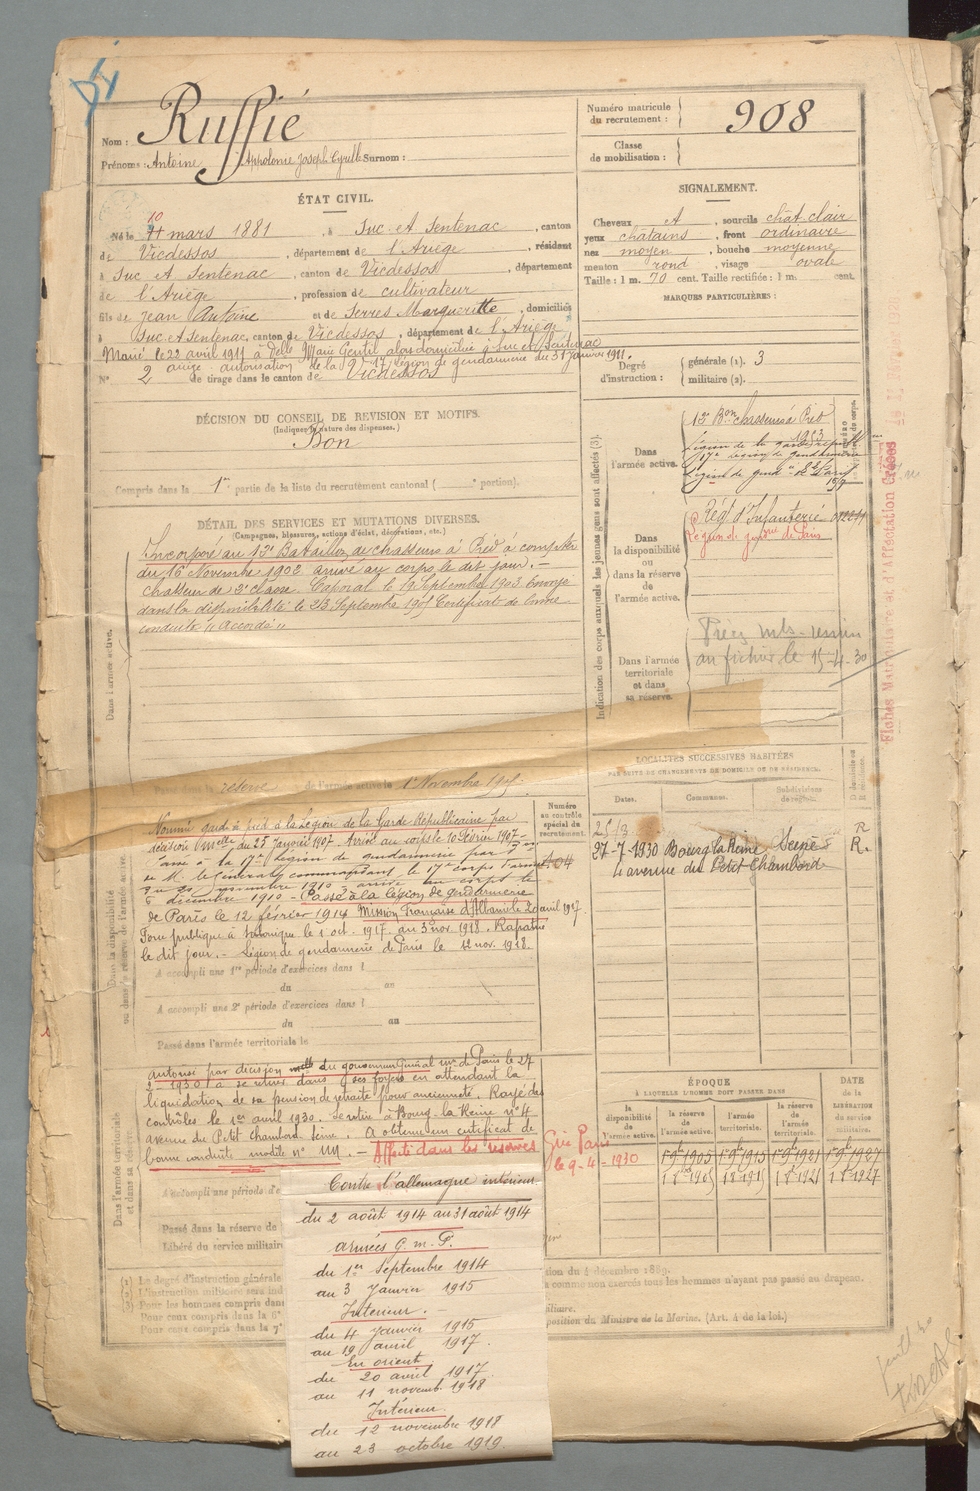 Nom : Ruffié
Prénoms : Antoine Appolonie Joseph Cyrille Surnom :
Numéro matricule du recrutement : 908
Classe de mobilisation :
ÉTAT CIVIL.
Né le 10 mars 1881, à Suc et Sentenac, canton
de Vicdessos, département de l'Ariège, résidant
à Suc et Sentenac, canton de Vicdessos, département
de l'Ariège, profession de cultivateur
fils de Jean Antoine et de Serres Marguerite, domiciliés
à Suc et Sentenac, canton de Vicdessos, département de l'Ariège
Marié le 22 avril 1911 à Delle Marie Gentil, alors domiciliée à Suc et Sentenac
autorisation de la 17e légion de gendarmerie du 31 janvier 1911.
N° 2 de tirage dans le canton de Vicdessos
SIGNALEMENT.
Cheveux et, sourcils chat. clair
yeux chatains, front ordinaire
nez moyen, bouche moyenne
menton rond, visage ovale
Taille : 1 m. 70 cent. Taille rectifiée : 1 m. cent.
MARQUES PARTICULIÈRES :
Degré d'instruction : générale (1). 3
militaire (2).
DÉCISION DU CONSEIL DE REVISION ET MOTIFS.
(Indiquer la nature des dispenses.)
Bon
Compris dans la 1re partie de la liste du recrutement cantonal ( e portion).
DÉTAIL DES SERVICES ET MUTATIONS DIVERSES.
(Campagnes, blessures, actions d'éclat, décorations, etc.)
Dans l'armée active.
Incorporé au 13e Bataillon de chasseurs à Pied à compter
du 16 Novembre 1902 arrivé au corps le dit jour. —
chasseur de 2e classe. Caporal le 19 Septembre 1903. Envoyé
dans la disponibilité le 23 Septembre 1905 Certificat de bonne
conduite " Accordé "
Indication des corps auxquels les jeunes gens sont affectés (3).
Dans l'armée active.
13e Bon chasseurs à Pied
1953
Légion de la garde répub
17e Légion de gendarmerie
Légion de gend Paris
Dans la disponibilité ou dans la réserve de l'armée active.
Régt d'Infanterie
Légion de gendrie de Paris
Dans l'armée territoriale et dans sa réserve.
au fichier le 15-4-30
Fiches Matriculaire et d'Affectation Créées
réserve de l'armée active le 1er Novembre 1905
Dans la disponibilité ou dans la réserve de l'armée active.
Nommé garde à pied à la Légion de la Garde Républicaine par
décision Mlle du 25 janvier 1907. Arrivé au corps le 10 Février 1907 —
Passé à la 17e Légion de gendarmerie par
de M. le Général commandant le 17e corps d'armée
du 20 novembre 1910, arrivé au corps le
6 décembre 1910 — Passé à la légion de gendarmerie
de Paris le 12 février 1914 Mission Française d'Albanie le 20 avril 1917.
Force publique à Salonique le 1 oct. 1917. au 3 nov 1918. Rapatrié
le dit jour. — Légion de gendarmerie de Paris le 12 nov. 1918.
Numéro au contrôle spécial du recrutement.
404
A accompli une 1re période d'exercices dans l
du au
A accompli une 2e période d'exercices dans l
du au
Passé dans l'armée territoriale le
LOCALITÉS SUCCESSIVES HABITÉES
PAR SUITE DE CHANGEMENTS DE DOMICILE OU DE RÉSIDENCE.
Dates. Communes. Subdivisions de région. D domicile ou R résidence.
R
27-7 1930 Bourg la Reine Seine R.
4 avenue du Petit Chambord
Dans l'armée territoriale et dans sa réserve.
autorisé par décision mlle du gouverneur Général mre de Paris le 27
2-1930 à se retirer dans ses foyers en attendant la
liquidation de sa pension de retraite pour ancienneté. Rayé des
contrôles le 1er avril 1930. Se retire à Bourg-la-Reine n° 4
avenue du Petit Chambord Seine. A obtenu un certificat de
bonne conduite modèle n° — Affecté dans les réserves Gie Paris
le 9-4-1930
A accompli une période d'e
Passé dans la réserve de
Libéré du service militaire
ÉPOQUE
À LAQUELLE L'HOMME DOIT PASSER DANS
la disponibilité de l'armée active. la réserve de l'armée active. l'armée territoriale. la réserve de l'armée territoriale. DATE de la LIBÉRATION du service militaire.
1 9bre 1905 1 9bre 1915 1 9bre 1921 1 9bre 1927
(1) Le degré d'instruction générale
(2) L'instruction militaire sera ind
(3) Pour les hommes compris dans
Pour ceux compris dans la 6e
Pour ceux compris dans la 7e
tion du 4 décembre 1889.
a comme non exercés tous les hommes n'ayant pas passé au drapeau.
iliaire.
position du Ministre de la Marine. (Art. 4 de la loi.)
Contre l'allemagne intérieur
du 2 août 1914 au 31 août 1914
armées G. m. P.
du 1er Septembre 1914
au 3 Janvier 1915
Interieur. —
du 4 Janvier 1915
au 19 avril 1917.
En orient
du 20 avril 1917
au 11 novemb 1918
Intérieur.
du 12 novembre 1918
au 23 octobre 1919.